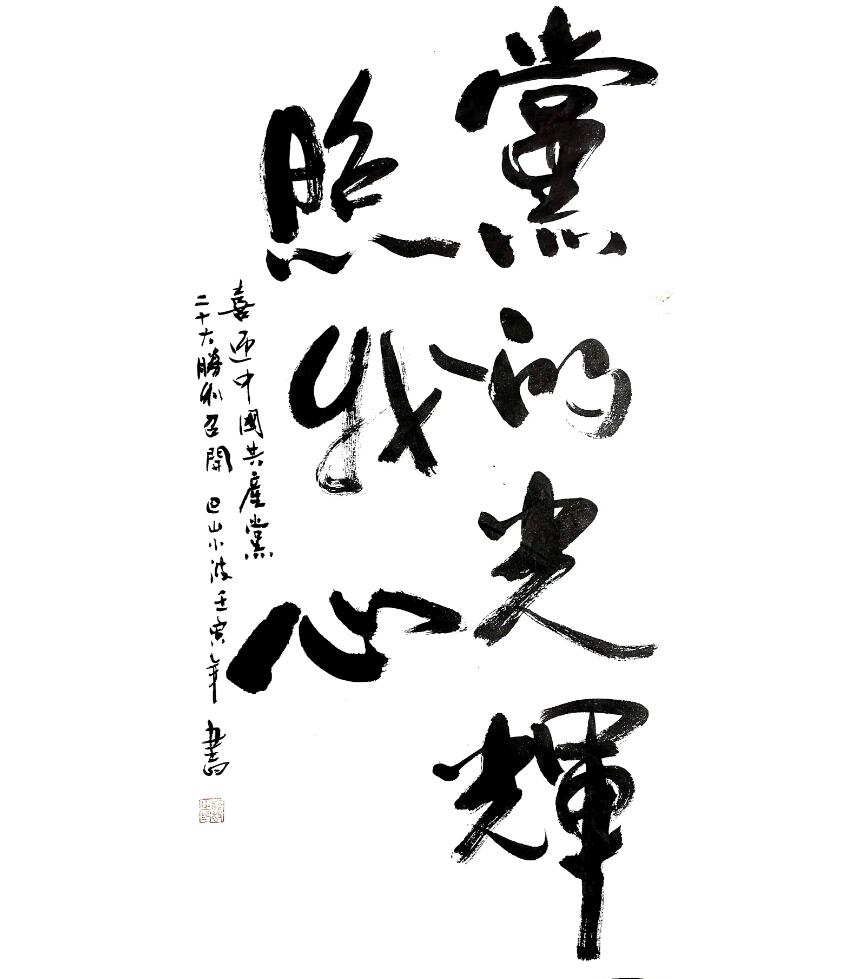 黨的光輝
照我心
喜迎中國共產黨
二十大勝利召開 巴山小波壬寅年書